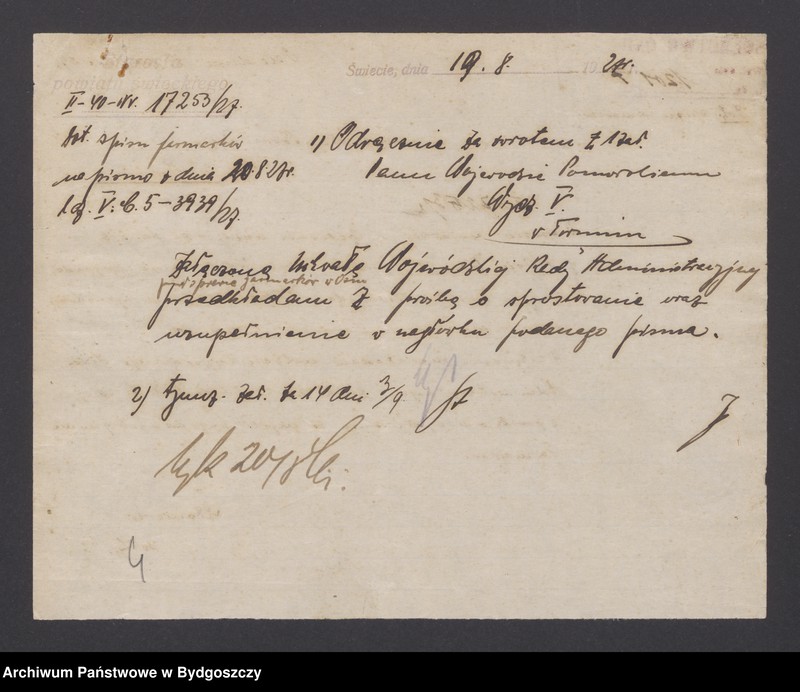 Świecie, dnia 19. 8. 19 27r.
II-40-Nr. 17253/27.
spisu jarmarków
na pismo z dnia 20.8 27r.
L.dz. V. C. 5-3939/27
1) Odręcznie za zwrotem 1 zał.
Panu Wojewodzie Pomorskiemu
Wydz. V.
w Toruniu
Załączoną uchwałę Wojewódzkiej Rady Administracyjnej
w sprawie jarmarków
przedkładam z prośbą o sprostowanie oraz
uzupełnienie w nagłówku podanego pisma.
2) zał. za 14 dni 3/9
20/8
4
Archiwum Państwowe w Bydgoszczy